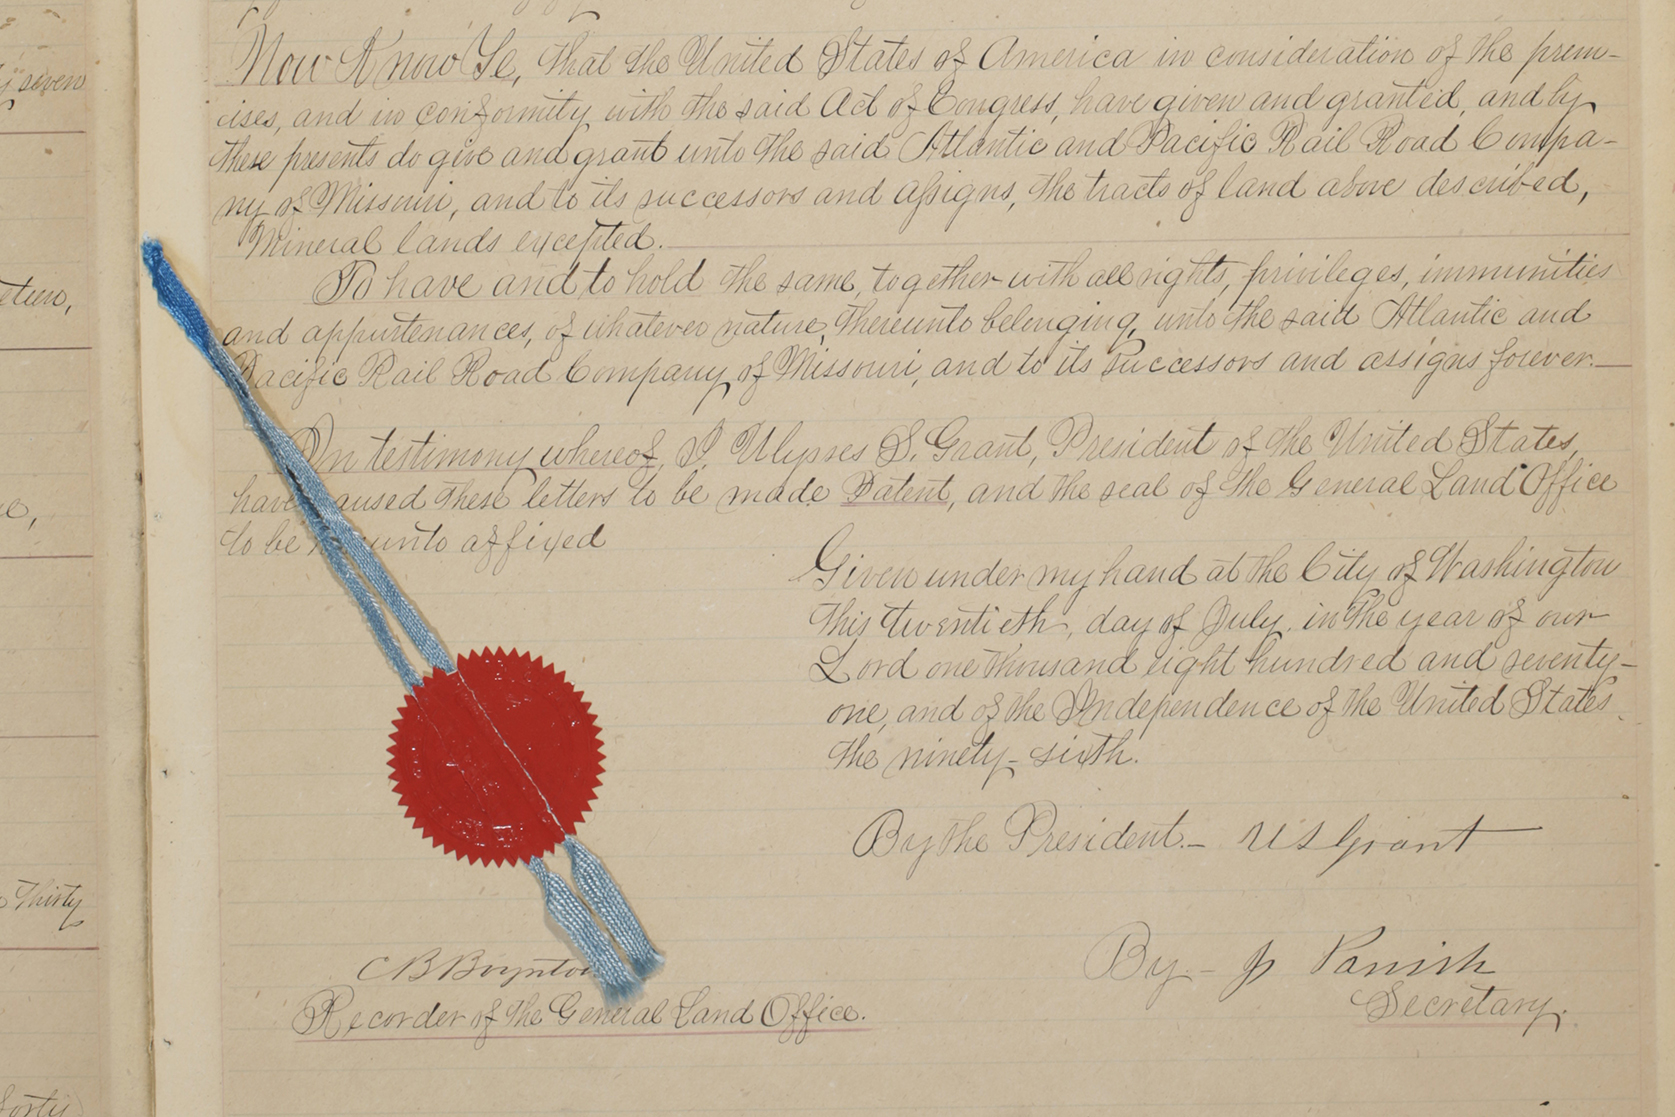 y seven
etien,
e,
Thirty
forty
Now Know Ye, that the United States of America in consideration of the prem-
ises, and in conformity with the said Act of Congress, have given and granted, and by
these presents do give and grant unto the said Atlantic and Pacific Rail Road Compa-
ny of Missouri, and to its successors and assigns, the tracts of land above described,
Mineral lands excepted.
To have and to hold the same, together with all rights, privileges, immunities
and appurtenances, of whatever nature, thereunto belonging, unto the said Atlantic and
Pacific Rail Road Company of Missouri, and to its successors and assigns forever.
In testimony whereof, I, Ulysses S. Grant, President of the United States,
have caused these letters to be made Patent, and the seal of the General Land Office
to be unto affixed
Given under my hand at the City of Washington
this twentieth, day of July, in the year of our
Lord one thousand eight hundred and seventy-
one, and of the Independence of the United States
the ninety-sixth.
By the President.- U S Grant
By- J Parrish
Secretary.
C B Boynton
Recorder of the General Land Office.